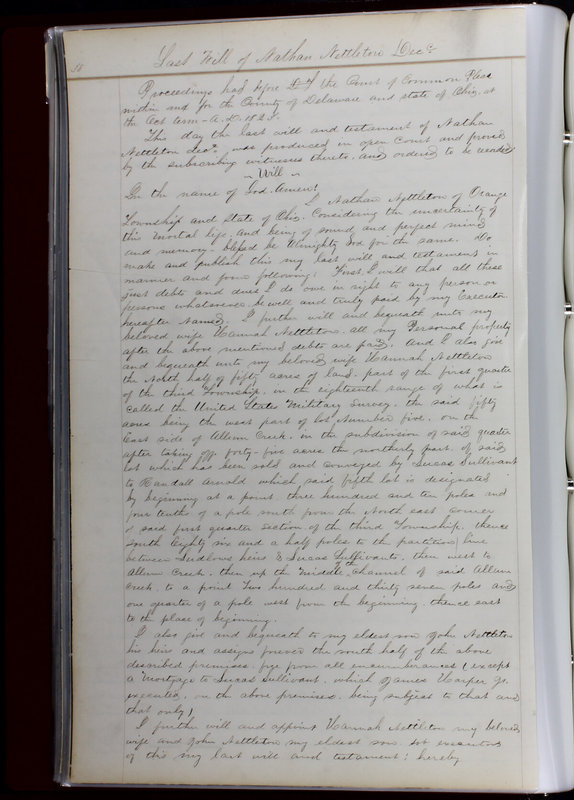 38
Last Will of Nathan Nettleton Decd
Proceedings had before the Court of Common Pleas
within and for the County of Delaware and state of Ohio, at
the Oct term - A.D. 1828.
This day the last will and testament of Nathan
Nettleton decd was produced in open Court and proved
by the subscribing witnesses thereto, and ordered to be recorded
~ Will ~
In the name of God. Ament
I Nathan Nettleton of Orange
Township and state of Ohio. Considering the uncertainty of
this mortal life, and being of sound and perfect mind
and memory. blessed be Almighty God for the same. do
make and publish this my last will and testament in
manner and form following: First, I will that all these
just debts and dues I do owe in right to any person or
persons whatsoever be well and truly paid by my Executor
hereafter Named. I further will and bequeath unto my
beloved wife Hannah Nettleton. all my Personal property
after the above mentioned debts are paid. And I also give
and bequeath unto my beloved wife Hannah Nettleton
the North half of fifty acres of land. part of the first quarter
of the third Township, in the eighteenth range of what is
called the United States Military Survey, the said fifty
acres being the west part of lot Number five. on the
East side of Allum Creek. in the subdivision of said quarter
after taking off forty-five acres the northerly part of said
lot which has been sold and conveyed by Lucas Sullivant
to Randall Arnold which said fifth lot is designated
by beginning at a point three hundred and ten poles and
four tenths of a pole south from the North east corner
of said first quarter section of the third Township, thence
south Eighty six and a half poles to the partition line
between Ludlows heirs & Lucas Sullivants, then west to
Allum Creek, then up the middle of the channel of said Allum
Creek, to a point Two hundred and thirty seven poles and
one quarter of a pole west from the beginning, thence east
to the place of beginning.
I also give and bequeath to my eldest son John Nettleton
his heirs and assigns forever the south half of the above
described premises, free from all encumberances (except
a Mortgage to Lucas Sullivant. which James Harper Jr.
executed, on the above premises. being subject to that and
that only)
I further will and appoint Hannah Nettleton my beloved
wife and John Nettleton my eldest son. executors
of this my last will and testament; hereby